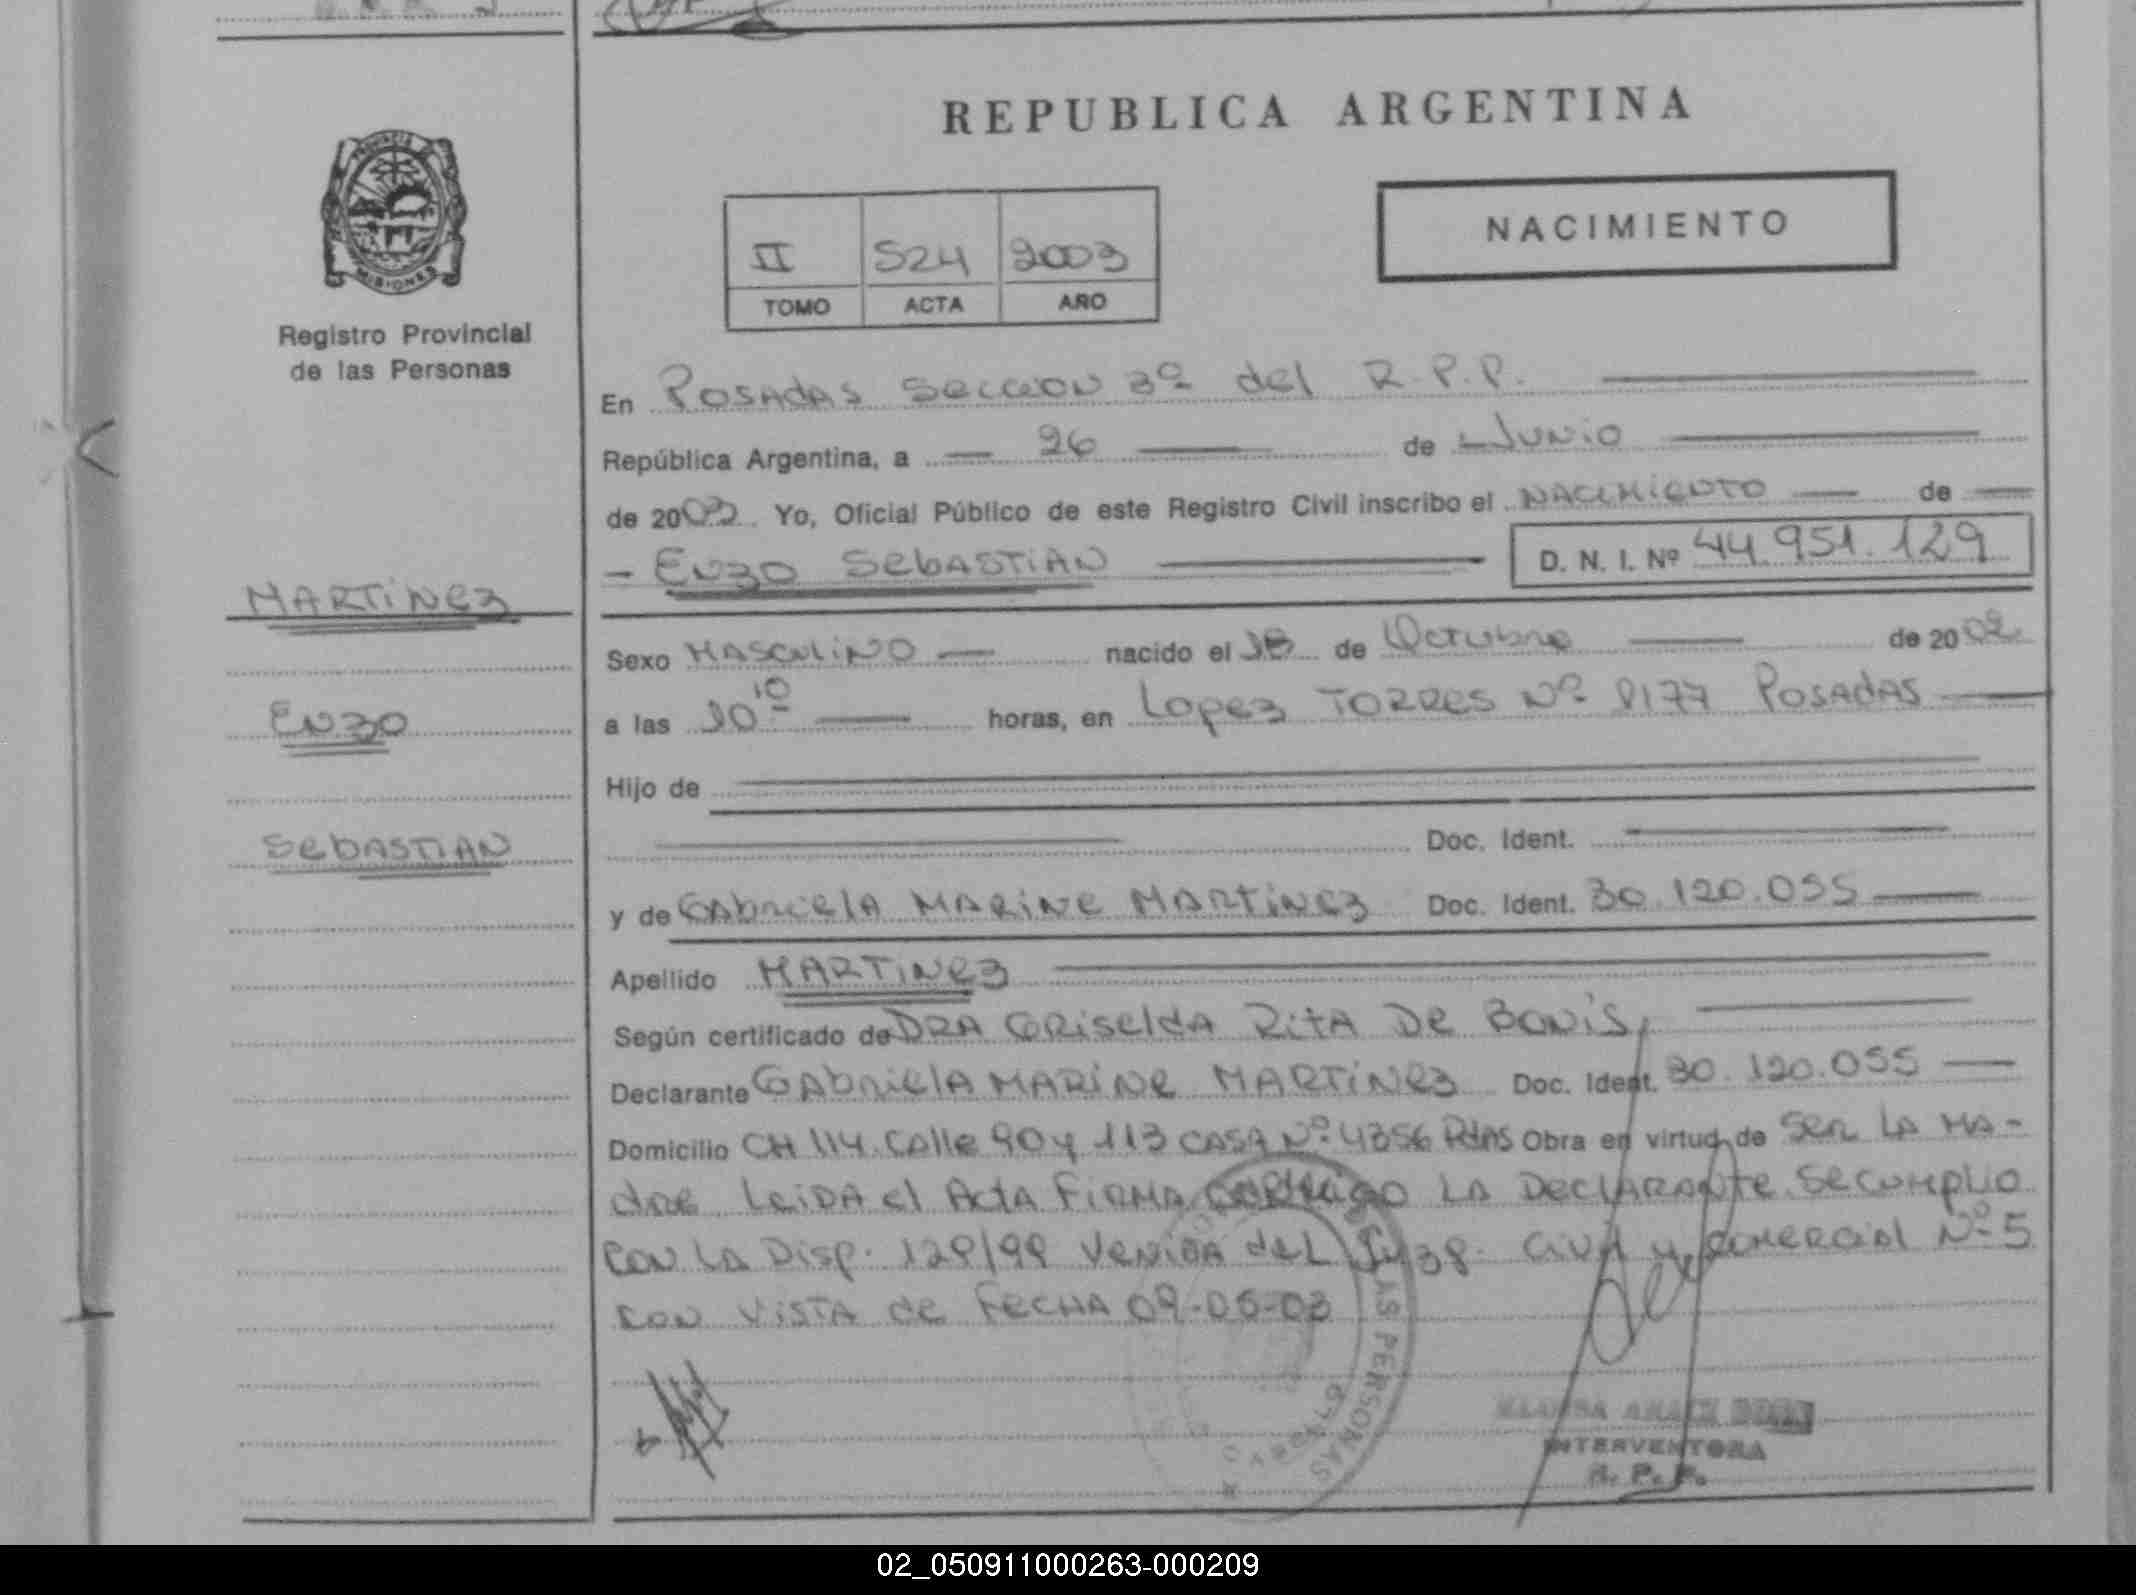 REPUBLICA ARGENTINA
PROVINCIA
MISIONES
Registro Provincial
de las Personas
II 524 2003
TOMO ACTA AÑO
NACIMIENTO
En Posadas Seccion 3º del R.P.P.
República Argentina, a 26 de Junio
de 2003 Yo, Oficial Público de este Registro Civil inscribo el NACIMIENTO de
Enzo Sebastian D. N. I. Nº 44.951.129
MARTINEZ
ENZO
SEBASTIAN
Sexo MASCULINO nacido el 18 de Octubre de 2002
a las 10 10 horas, en Lopez TORRES Nº 8177 POSADAS
Hijo de
Doc. Ident.
y de Gabriela MARINE MARTINEZ Doc. Ident. 30.120.055
Apellido MARTINEZ
Según certificado de DRA GRISELDA RITA DE BONIS,
Declarante GABRIELA MARINE MARTINEZ Doc. Ident. 30.120.055
Domicilio CH 114 Calle 90 y 113 CASA Nº 4356 Pdas Obra en virtud de ser LA MA-
dre Leida el Acta FIRMA conmigo LA DECLARANTE. Se cumplio
con LA Disp. 129/99 VENIDA del Juzg. Civil y Comercial Nº 5
con VISTA de FECHA 09-05-03
LAS PERSONAS
INTERVENTORA
R. P. P.
02_050911000263-000209